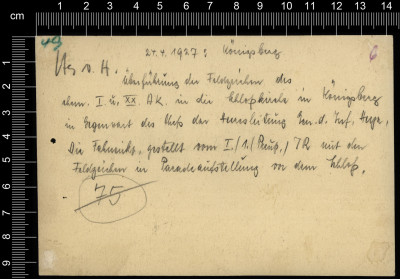 49
6
24.4.1927: Königsberg
überführung der Feldzeichen des
ehem. I u. XX AK. in die Schloßkirche in Königsberg
in Gegenwart des Chefs der Heeresleitung Gen. d. Inf. Heye.
Die Fahnenkp. gestellt vom I./1.(Preuß.) IR mit den
Feldzeichen in Paradeaufstellung vor dem Schloß.
75